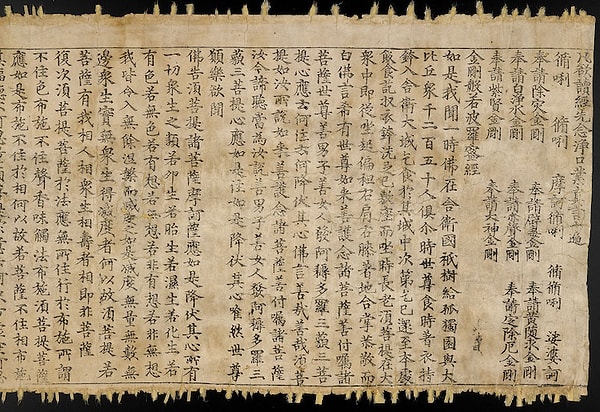 凡欲讀經先念淨口業真言一遍
脩唎 脩唎 摩訶脩唎 脩脩唎 娑婆訶
奉請除灾金剛 奉請辟毒金剛 奉請黃隨求金剛
奉請白淨水金剛 奉請赤聲金剛 奉請定除厄金剛
奉請紫賢金剛 奉請大神金剛
金剛般若波羅蜜經
如是我聞一時佛在舍衛國祇樹給孤獨園與大
比丘衆千二百五十人俱尒時世尊食時著衣持
鉢入舍衛大城乞食於其城中次第乞已還至本處
飯食訖收衣鉢洗足已敷座而坐時長老須菩提在大
衆中即從坐起偏袒右肩右膝著地合掌恭敬而
白佛言希有世尊如來善護念諸菩薩善付囑諸
菩薩世尊善男子善女人發阿耨多羅三藐三菩
提心應云何住云何降伏其心佛言善哉善哉須菩
提如汝所說如來善護念諸菩薩善付囑諸菩薩
汝今諦聽當為汝說善男子善女人發阿耨多羅三
藐三菩提心應如是住如是降伏其心唯然世尊
願樂欲聞
佛告須菩提諸菩薩摩訶薩應如是降伏其心所有
一切衆生之類若卵生若胎生若濕生若化生若
有色若無色若有想若無想若非有想若非無想
我皆令入無餘涅槃而滅度之如是滅度無量無數無
邊衆生實無衆生得滅度者何以故須菩提若
菩薩有我相人相衆生相壽者相即非菩薩
復次須菩提菩薩於法應無所住行於布施所謂
不住色布施不住聲香味觸法布施須菩提菩薩
應如是布施不住於相何以故若菩薩不住相布施